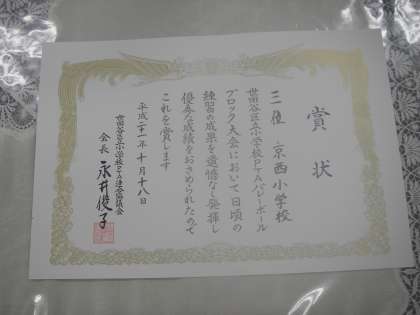 賞状
三位 京西小学校
世田谷区立小学校PTAバレーボール
ブロック大会において日頃の
練習の成果を遺憾なく発揮し
優秀な成績をおさめられたので
これを賞します
平成二十一年十月十八日
世田谷区立小学校PTA連合協議会
会長 永井俊子